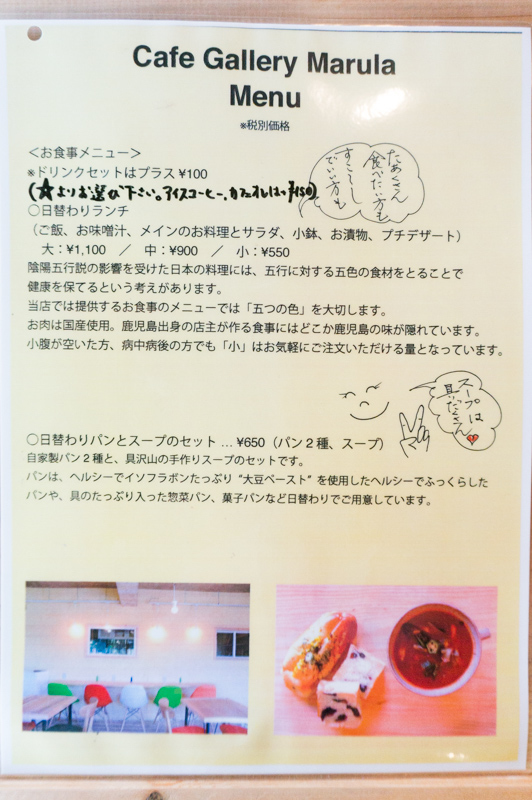 Cafe Gallery Marula
Menu
※税別価格
＜お食事メニュー＞
※ドリンクセットはプラス ¥100
(★よりお選び下さい。アイスコーヒー、カフェオレは+¥150)
たぁくさん
食べたい方も
すこ〜し
でいい方も
○日替わりランチ
（ご飯、お味噌汁、メインのお料理とサラダ、小鉢、お漬物、プチデザート）
大：¥1,100　／　中：¥900　／　小：¥550
陰陽五行説の影響を受けた日本の料理には、五行に対する五色の食材をとることで
健康を保てるという考えがあります。
当店では提供するお食事のメニューでは「五つの色」を大切します。
お肉は国産使用。鹿児島出身の店主が作る食事にはどこか鹿児島の味が隠れています。
小腹が空いた方、病中病後の方でも「小」はお気軽にご注文いただける量となっています。
スープは
具だくさん
○日替わりパンとスープのセット … ¥650（パン２種、スープ）
自家製パン２種と、具沢山の手作りスープのセットです。
パンは、ヘルシーでイソフラボンたっぷり“大豆ペースト”を使用したヘルシーでふっくらした
パンや、具のたっぷり入った惣菜パン、菓子パンなど日替わりでご用意しています。